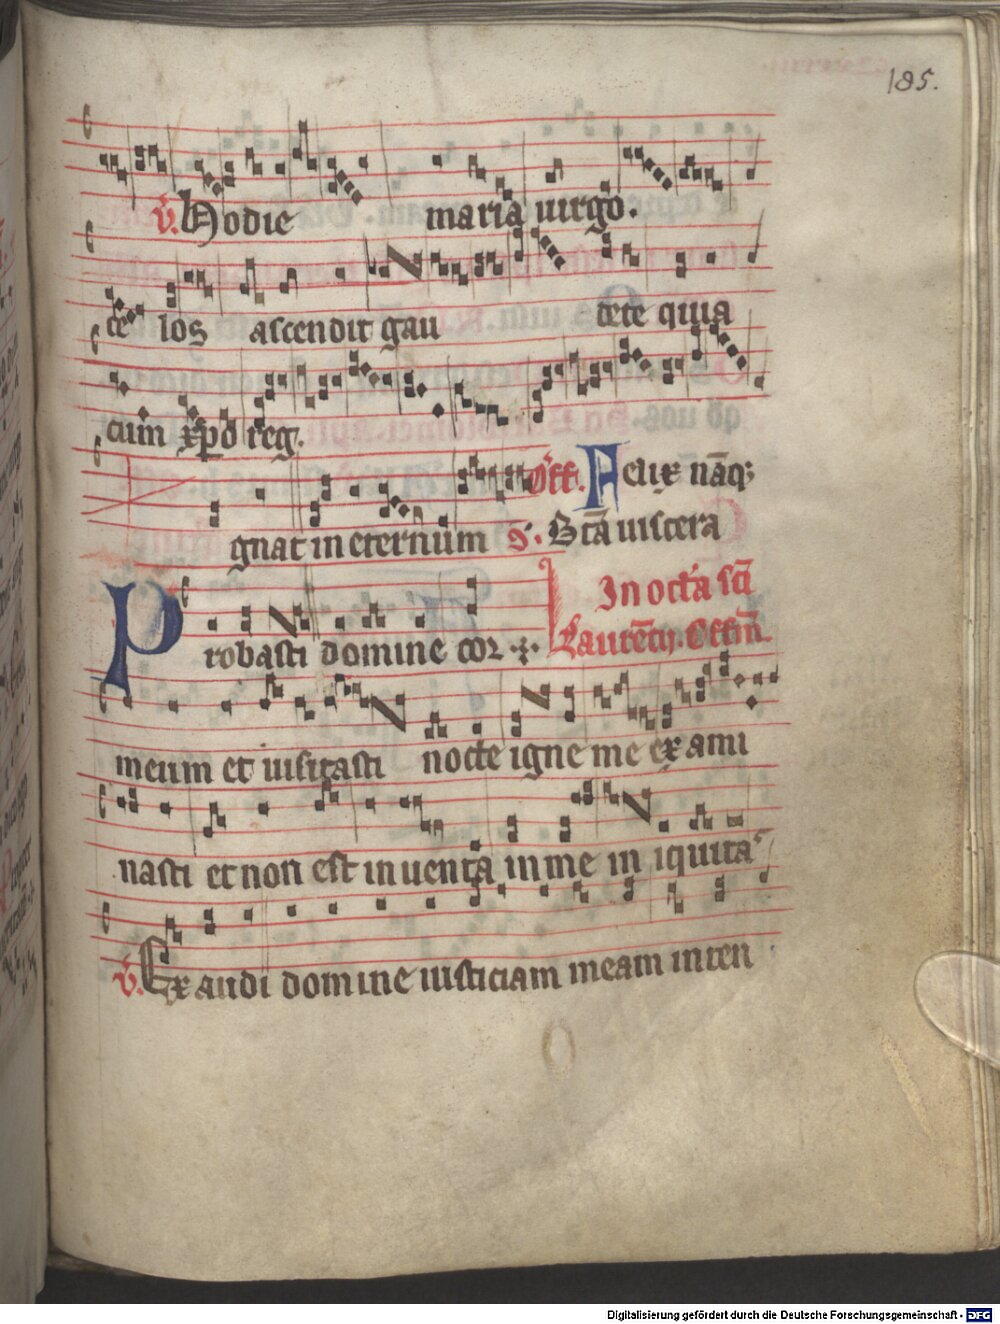 185.
v̄. Hodie maria uirgo.
ce los ascendit gau dete quia
cum xp̄o reg.
Off. Felix nāq;
gnat in eternum ꝯ. Bc̄a uiscera
In octa sc̄i
Laurēcij. Offm̄
Probasti domine cor
meum et uisitasti nocte igne me exami
nasti et non est inuenta in me in iquita
v̄. Exaudi domine iusticiam meam inten
Digitalisierung gefördert durch die Deutsche Forschungsgemeinschaft - DFG